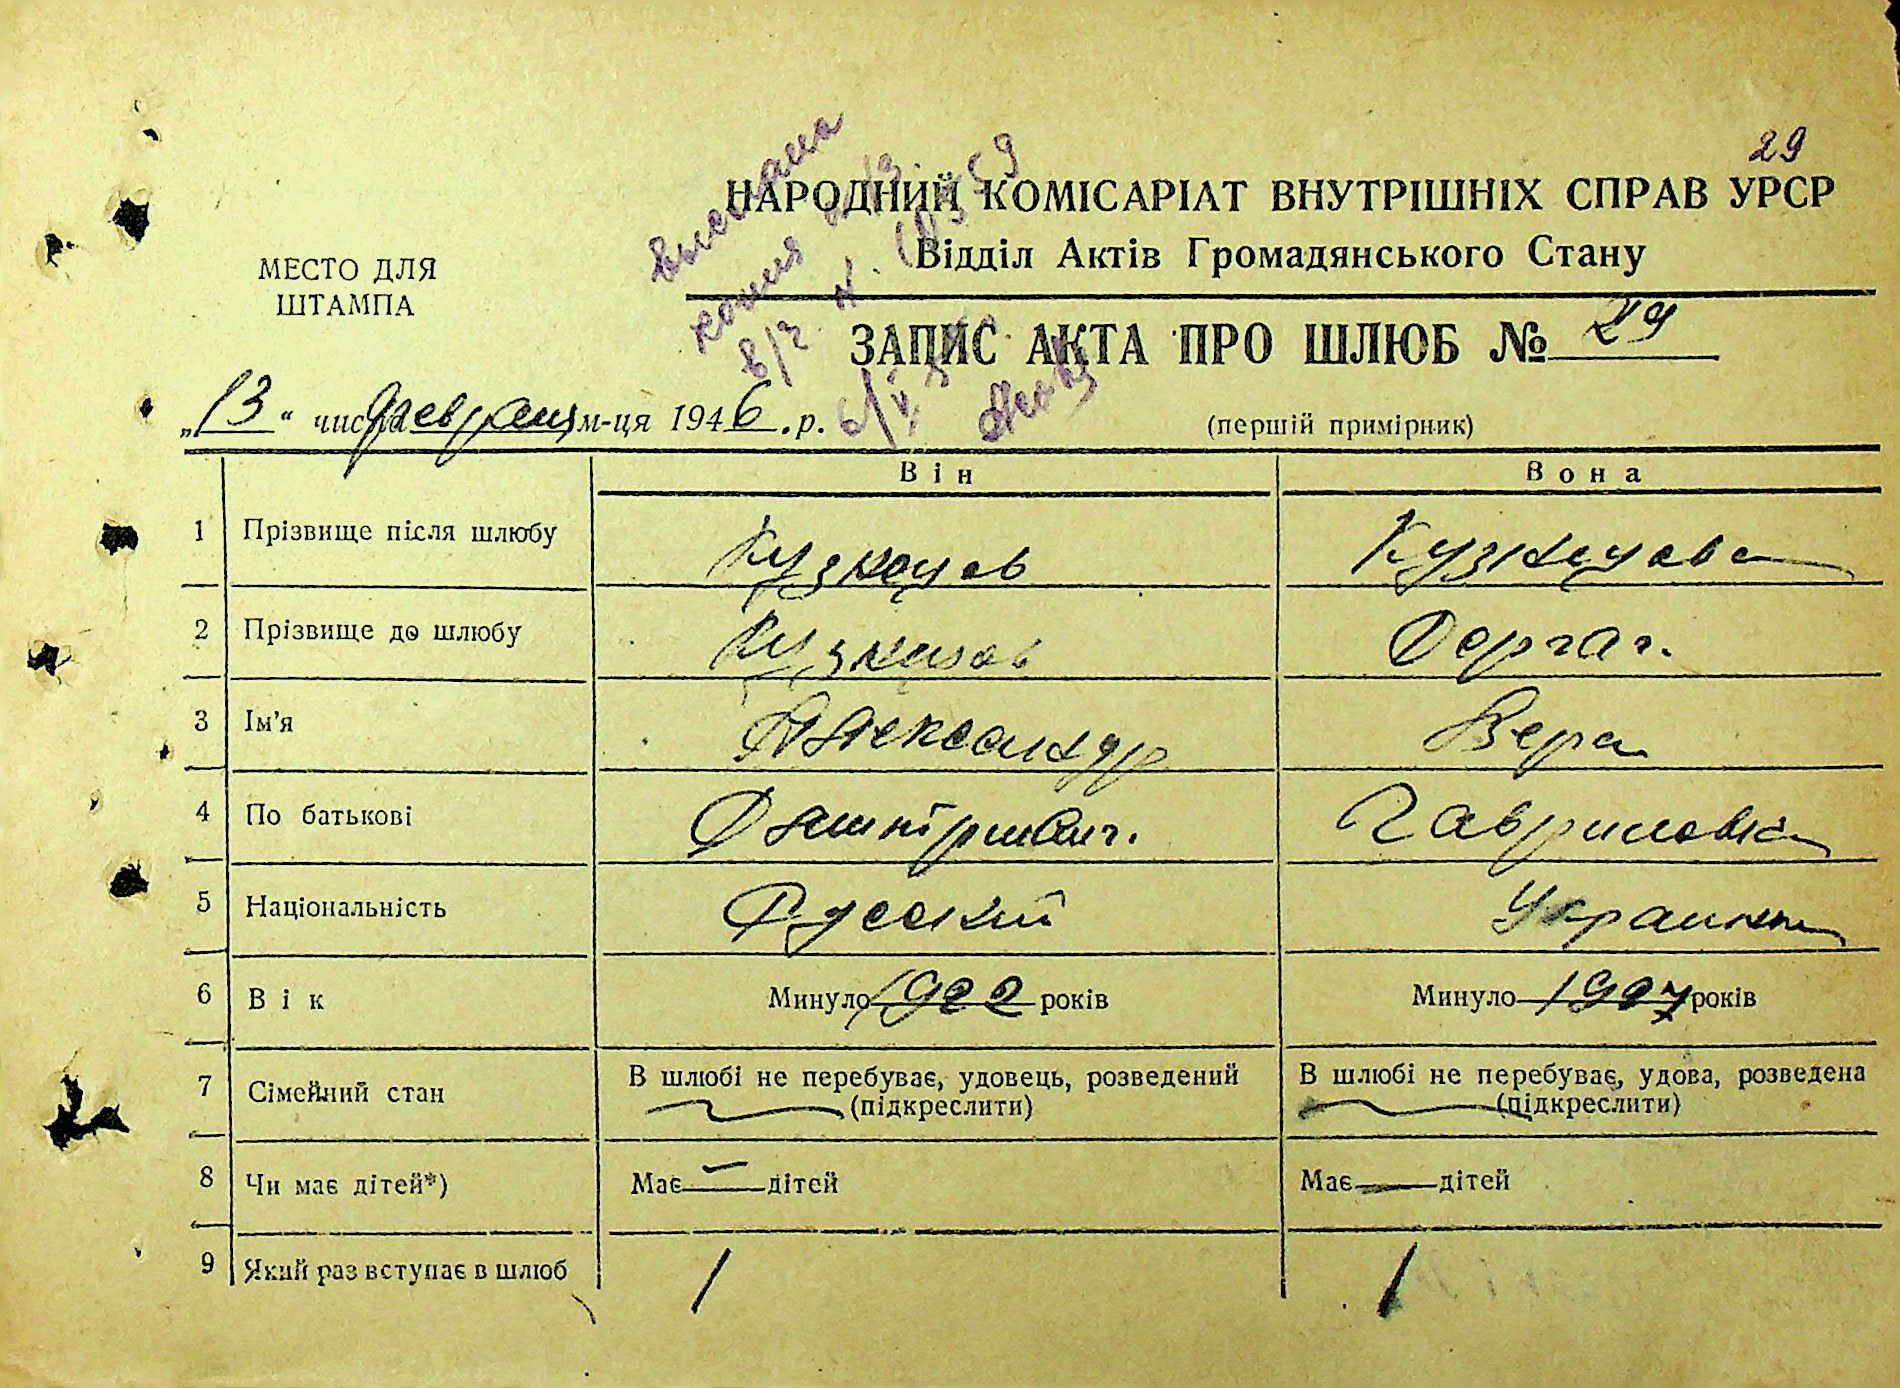 29
НАРОДНИЙ КОМІСАРІАТ ВНУТРІШНІХ СПРАВ УРСР
Відділ Актів Громадянського Стану
МЕСТО ДЛЯ
ШТАМПА
выслана
копия
в/ч
ЗАПИС АКТА ПРО ШЛЮБ № 29
„13" числа февраля м-ця 1946.р.
(перший примірник)
Він Вона
1 Прізвище після шлюбу Кузнецов Кузнецова
2 Прізвище до шлюбу Кузнецов Дергач.
3 Ім'я Александр Вера
4 По батькові Дмитриевич. Гавриловна
5 Національність Русский Украинка
6 Вік Минуло 1922 років Минуло 1927 років
7 Сімейний стан В шлюбі не перебуває, удовець, розведений В шлюбі не перебуває, удова, розведена
(підкреслити) (підкреслити)
8 Чи має дітей*) Має — дітей Має — дітей
9 Який раз вступає в шлюб 1 1